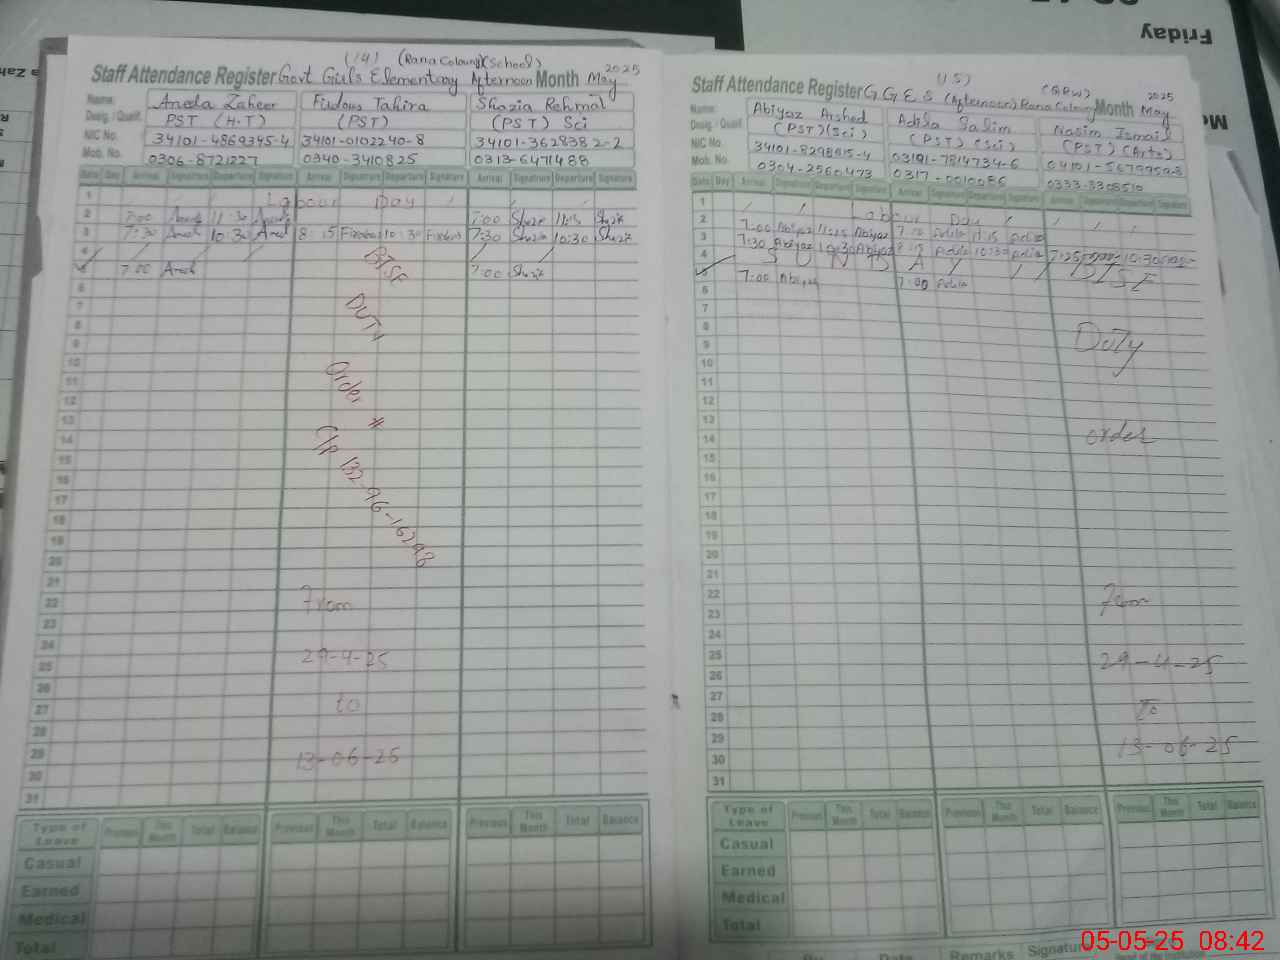 Friday
(14) (Rana Colouny)(School)
Staff Attendance Register Govt Girls Elementary Afternoon Month May 2025
Name: Aneela Zaheer Firdous Tahira Shazia Rehmat
Desig. / Qualif. PST (H.T) (PST) (PST) Sci
NIC No. 34101-4869345-4 34101-0102240-8 34101-3628382-2
Mob. No. 0306-8721227 0340-3410825 0313-6471488
Date Day Arrival Signature Departure Signature Arrival Signature Departure Signature Arrival Signature Departure Signature
1 Labour Day
2 7:00 11:30 7:00 11:15
3 7:30 10:30 8:15 10:30 7:30 10:30
4
5 7:00 7:00
6
7
8
9
10
11
12
13
14
15
16
17
18
19
20
21
22
23
24
25
26
27
28
29
30
31
DUTY
Order
#
132-96-16298
From
29-4-25
to
13-06-25
Type of Leave Previous This Month Total Balance Previous This Month Total Balance Previous This Month Total Balance
Casual
Earned
Medical
Total
(15)
Staff Attendance Register G G E S (Afternoon) Rana Colouny Month May 2025
Name: Abiyaz Arshed Adila Salim Nasim Ismail
Desig. / Qualif. (PST)(Sci) (PST) (Sci) (PST) (Arts)
NIC No. 34101-8298815-4
Mob. No. 0304-2560473 0317-0010086 0333-8308510
Date Day Arrival Signature Departure Signature Arrival Signature Departure Signature Arrival Signature Departure Signature
1 Labour Day
2 7:00 Abiyaz 11:15 Abiyaz 7:00 Adila 11:15 Adila
3 7:30 Abiyaz 10:30 Abiyaz 8:15 Adila 10:30 Adila 7:25 10:30
4 S U N D A Y
5 7:00 Abiyaz 7:00 Adila
6
7
8
9
10
11
12
13
14
15
16
17
18
19
20
21
22
23
24
25
26
27
28
29
30
31
BISE
Duty
order
From
29-4-25
To
13-06-25
Type of Leave Previous This Month Total Balance Previous This Month Total Balance Previous This Month Total Balance
Casual
Earned
Medical
Total
By Date Remarks Signature
05-05-25 08:42